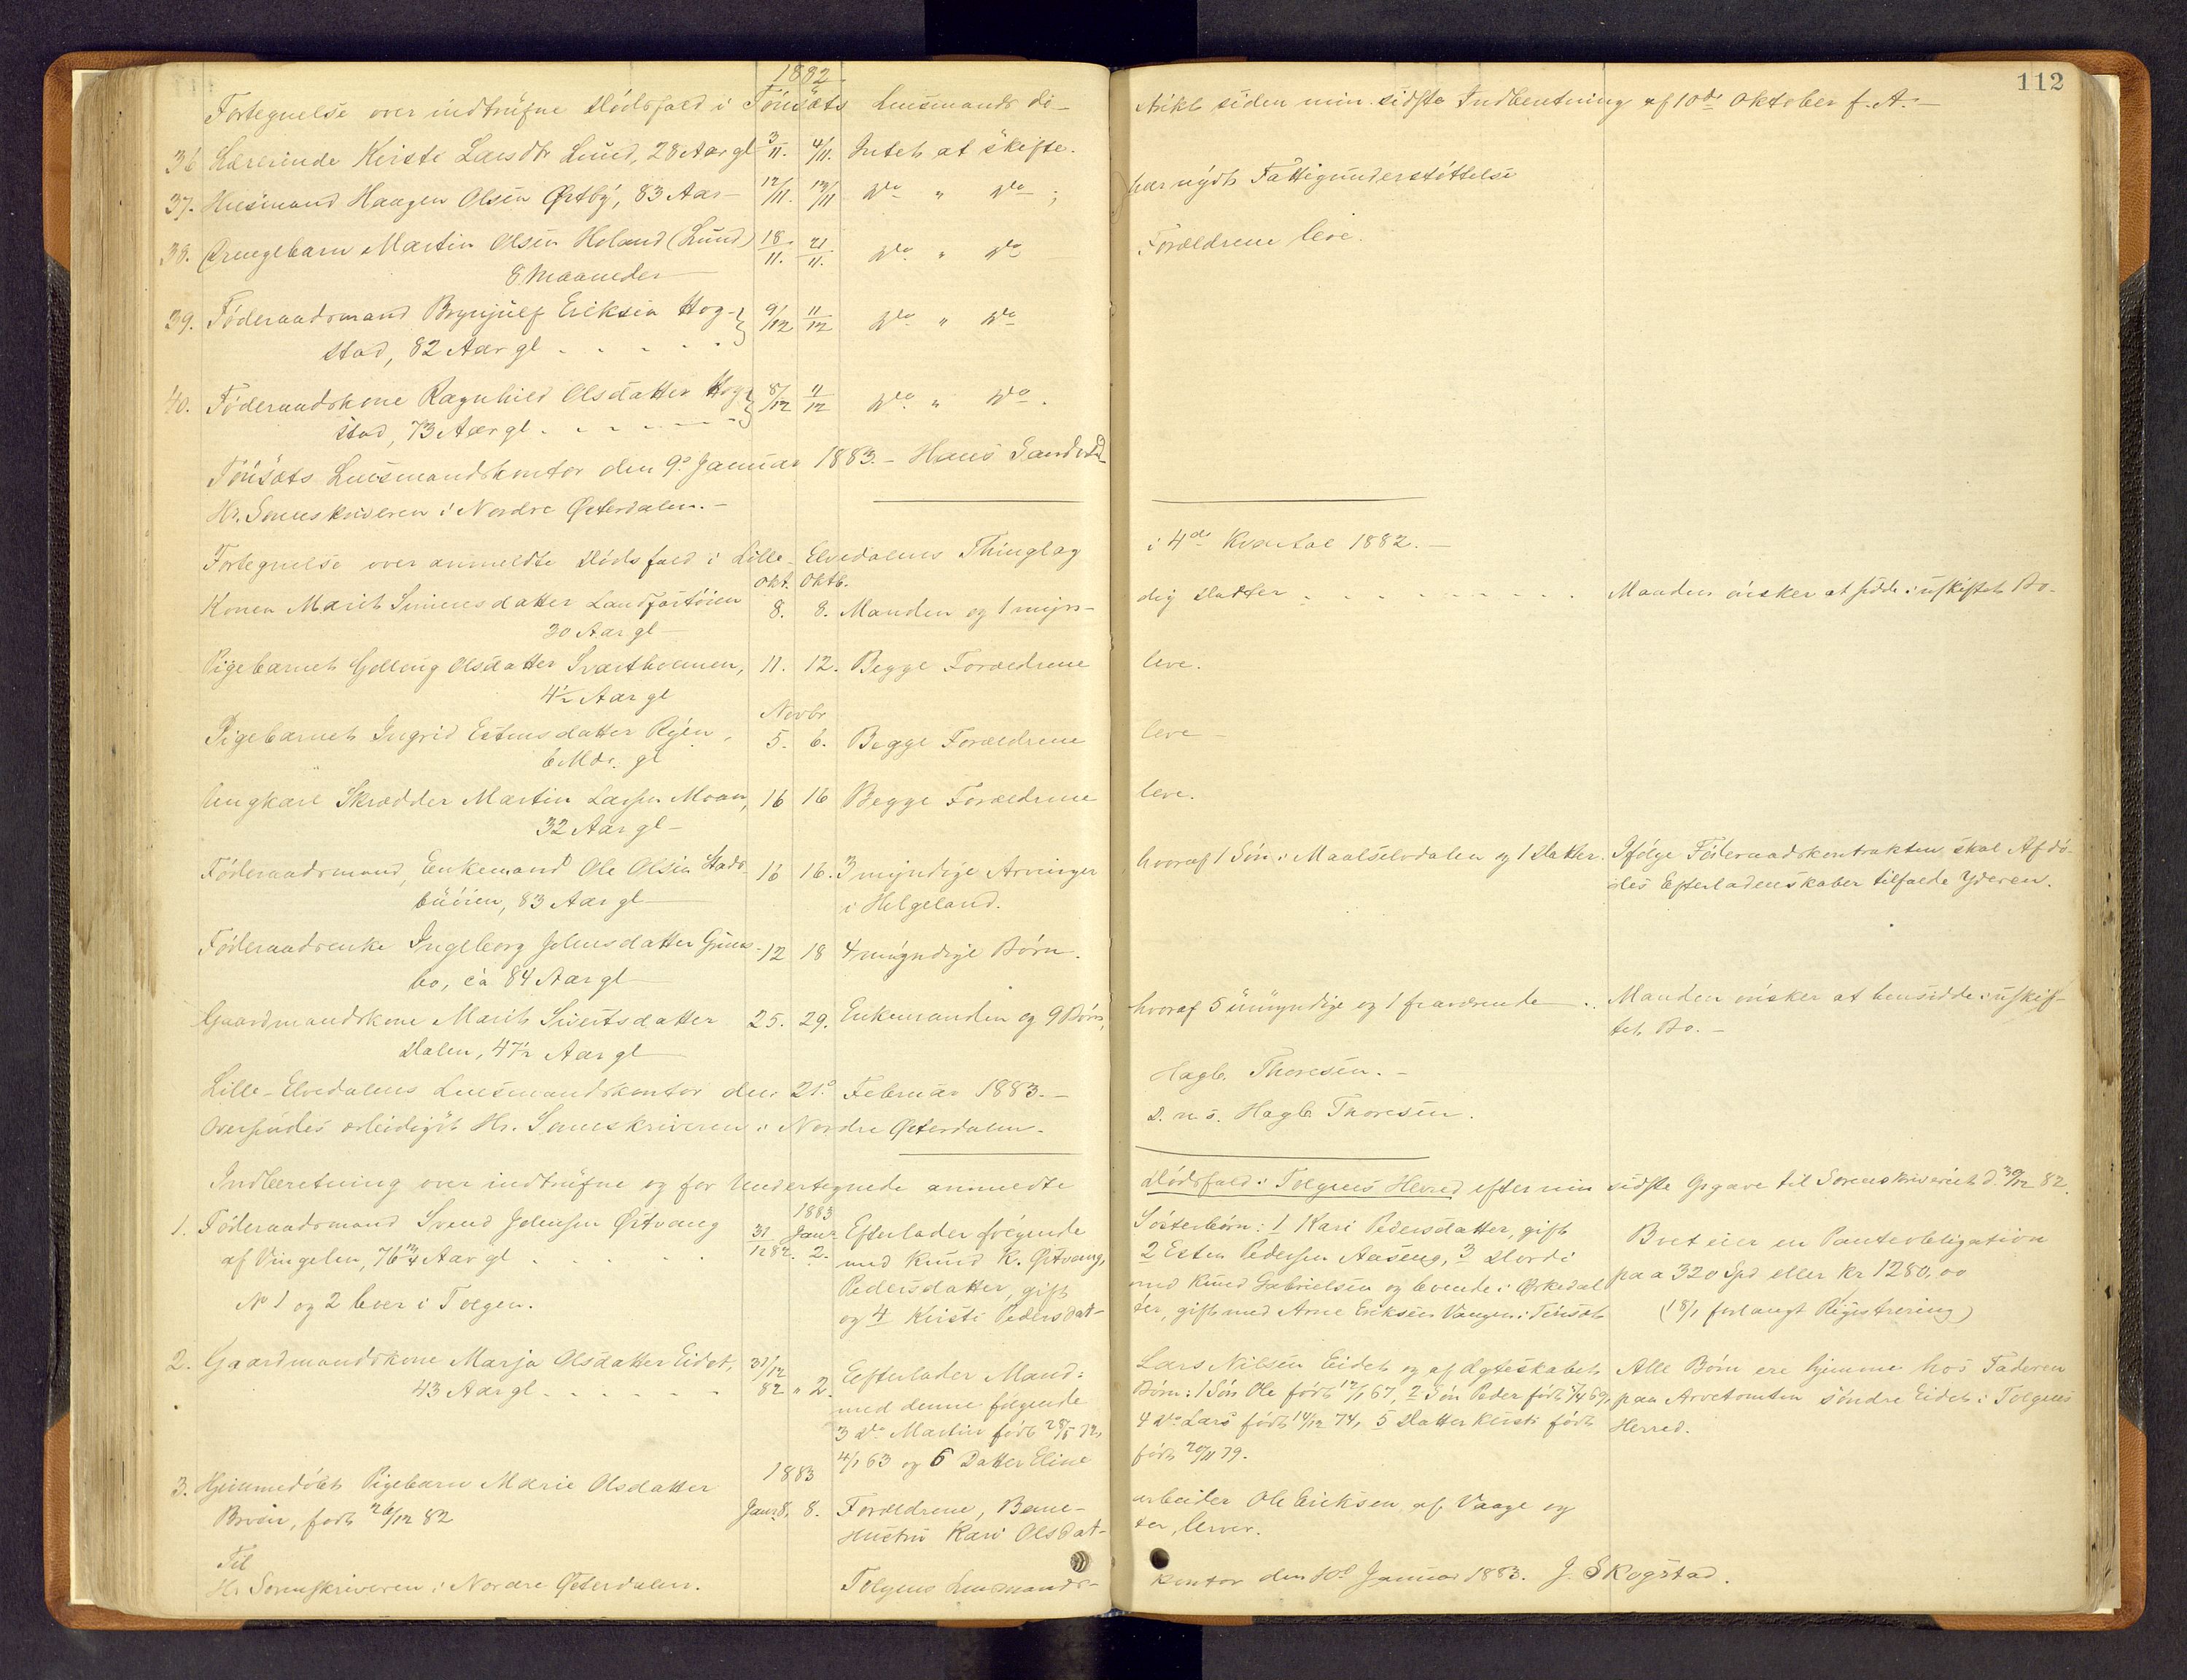 112
1882
Fortegnelse over indtrufne Dødsfald i Tønsæts Lensmands di-
strikt siden min sidste Indberetning af 10de Oktober f. A. -
36 Lærerinde Kirsti Larsdtr Lund, 28 Aar gl 3/11. 4/11. Intet at skifte.
37. Husmand Haagen Olsen Østby, 83 Aar - 12/11. 13/11 Do " Do ; har nydt Fattigunderstøttelse
38. Drengebarn Martin Olsen Holand (Lund) 18/11. 21/11. Do " Do Forældrene leve.
8 Maaneder
39. Føderaadsmand Brynjulf Eriksen Hog- 9/12 11/12 Do " Do
stad, 82 Aar gl . . . . .
40. Føderaadskone Ragnhild Olsdatter Hog- 8/12 11/12 Do " Do.
stad, 73 Aar gl . . . . .
Tønsæts Lensmandskontor den 9de Januar 1883. - Hans
Hr. Sorenskriveren i Nordre Østerdalen. -
Fortegnelse over anmeldte Dødsfald i Lille-Elvedalens Thinglag i 4de Kvartal 1882. -
Okt. Oktb.
Konen Marit Simensdatter Landfastøien 8. 8. Manden og 1 myn- dig Datter . . . . . Manden ønsker at sidde i uskiftet Bo.
30 Aar gl -
Pigebarnet Golloug Olsdatter Svartholmen, 11. 12. Begge Forældrene leve.
4½ Aar gl
Novbr
Pigebarnet Ingrid Estensdatter Ryen, 5. 6. Begge Forældrene leve -
6 Mdr. gl
Ungkarl Skrædder Martin Larsen Moan, 16 16 Begge Forældrene leve.
32 Aar gl -
Føderaadsmand, Enkemand Ole Olsen Stads- 16 16. 3 myndige Arvinger hvoraf 1 Søn i Maalselvdalen og 1 Datter. Ifølge Føderaadskontrakten skal Afdø-
buøien, 83 Aar gl - i Helgeland. des Efterladenskaber tilfalde Yderen.
Føderaadsenke Ingeborg Johnsdatter - 12 18 4 myndige Børn.
bo, ca 84 Aar gl -
Gaardmandskone Marit Sivertsdatter 25. 29. Enkemanden og 9 Børn, hvoraf 5 umyndige og 1 fraværende . Manden ønsker at hensidde i uskif-
Dalen, 47½ Aar gl - tet Bo. -
Lille-Elvedalens Lensmandskontor den 21de Februar 1883. - Hagb. Thoresen. -
Oversendes ærbødigst Hr. Sorenskriveren i Nordre Østerdalen. D. u. s. Hagb. Thoresen.
Indberetning over indtrufne og for Undertegnede anmeldte Dødsfald i Tolgens Herred efter min sidste Opgave til Sorenskriveriet d. 30/12 82.
1883
1. Føderaadsmand Svend Johnsen Østvang 31/12 82. Janr 2. Efterlader følgende Søsterbørn: 1 Kari Pedersdatter, gift
af Vingelen, 76 Aar gl . . . . med Knud K. Østvang, 2 Esten Pedersen Aaseng, 3 Dordi Boet eier en Panteobligation
No 1 og 2 boer i Tolgen. Pedersdatter, gift med Knud Gabrielsen og boende i Ørkedal paa 320 Spd eller Kr 1280,00
og 4 Kirsti Pedersdat- ter, gift med Arne Eriksen Vangen i Tønsæt (18/1 forlangt Registrering)
2. Gaardmandskone Marja Olsdatter Eidet, 31/12 82 " 2. Efterlader Mand: Lars Nilsen Eidet og af Ægteskabet Alle Børn ere hjemme hos Faderen
43 Aar gl . . . . . med denne følgende Børn: 1 Søn Ole født 12/1 67, 2 Søn Peder født 7/4 69, paa Arvetomten søndre Eidet i Tolgens
3 Do Martin født 28/5 72, 4 Do Lars født 14/12 74, 5 Datter Kirsti født Herred.
4/1 63 og 6 Datter Eline født 20/11 79.
1883
3. Hjemmedøbt Pigebarn Marie Olsdatter Janr 8. 8. Forældrene, Bane- arbeider Ole Eriksen af Vaage og
født 26/12 82 Hustru Kari Olsdat- ter, lever.
Til
Hr. Sorenskriveren i Nordre Østerdalen. Tolgens Lensmands- kontor den 10de Januar 1883. J. Skogstad.